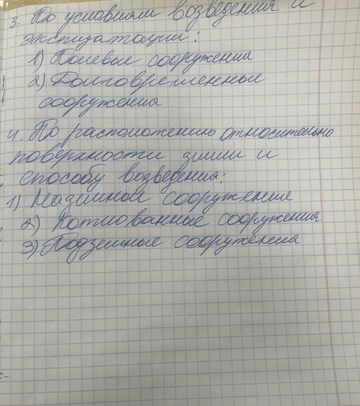 3. По условиям возведения и
эксплуатации:
1) Полевые сооружения
2) Долговременные
сооружения
4. По расположению относительно
поверхности земли и
способу возведения:
1) Наземные сооружение
2) Котлованные сооружения
3) Подземные сооружения